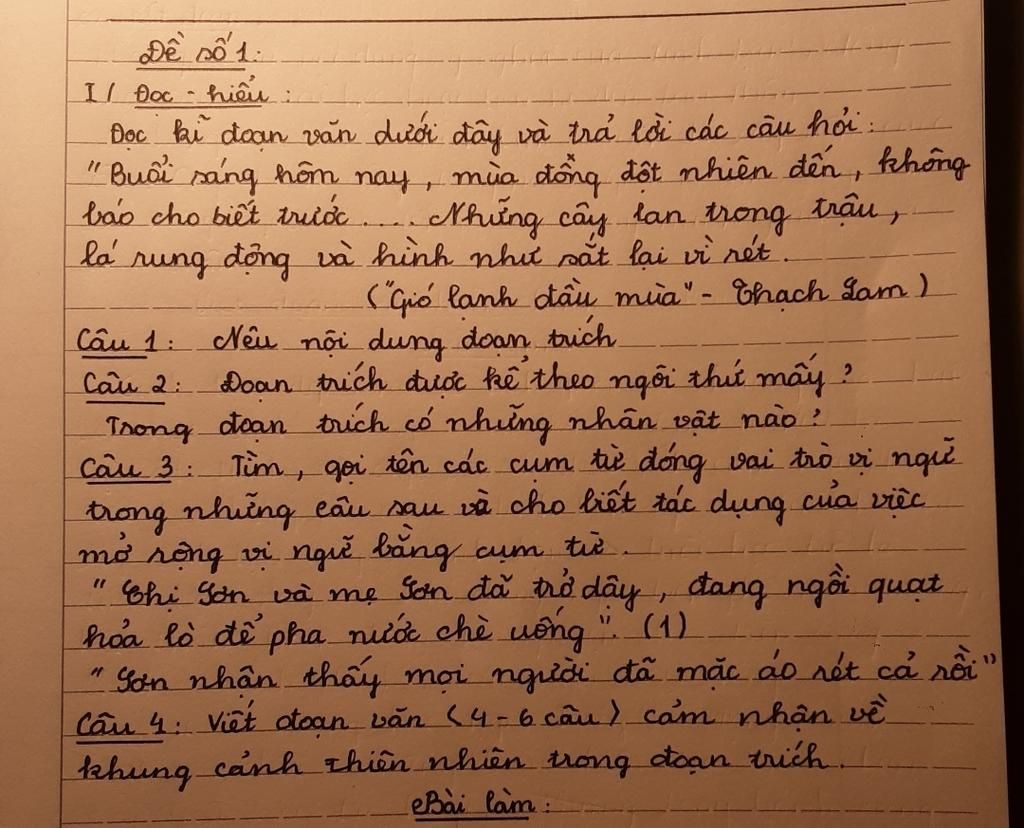 Đề số 1:
I/ Đọc - hiểu:
Đọc kĩ đoạn văn dưới đây và trả lời các câu hỏi:
"Buổi sáng hôm nay, mùa đổng đột nhiên đến, không
báo cho biết trước .... Những cây lan trong trậu,
lá rung động và hình như sắt lại vì rét.
("Gió lạnh đầu mùa" - Thạch Lam)
Câu 1: Nêu nội dung đoạn trích
Câu 2: Đoạn trích được kể theo ngôi thứ mấy?
Trong đoạn trích có những nhân vật nào?
Câu 3: Tìm, gọi tên các cụm từ đóng vai trò vị ngữ
trong những câu sau và cho biết tác dụng của việc
mở rộng vị ngữ bằng cụm từ.
"Chị Sơn và mẹ Sơn đã trở dậy, đang ngồi quạt
hỏa lò để pha nước chè uống". (1)
"Sơn nhận thấy mọi người đã mặc áo rét cả rồi"
Câu 4: Viết đoạn văn (4-6 câu) cảm nhận về
khung cảnh thiên nhiên trong đoạn trích.
Bài làm: